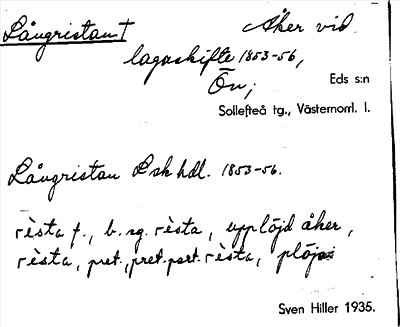 Långristan † Åker vid
lagaskifte 1853-56,
Ön, Eds s:n
Sollefteå tg., Västernorrl. l.
Långristan L sk hdl. 1853-56.
rèsta f., b. sg. rèsta, upplöjd åker,
rèsta, pret., pret. part. rèsta, plöja
Sven Hiller 1935.